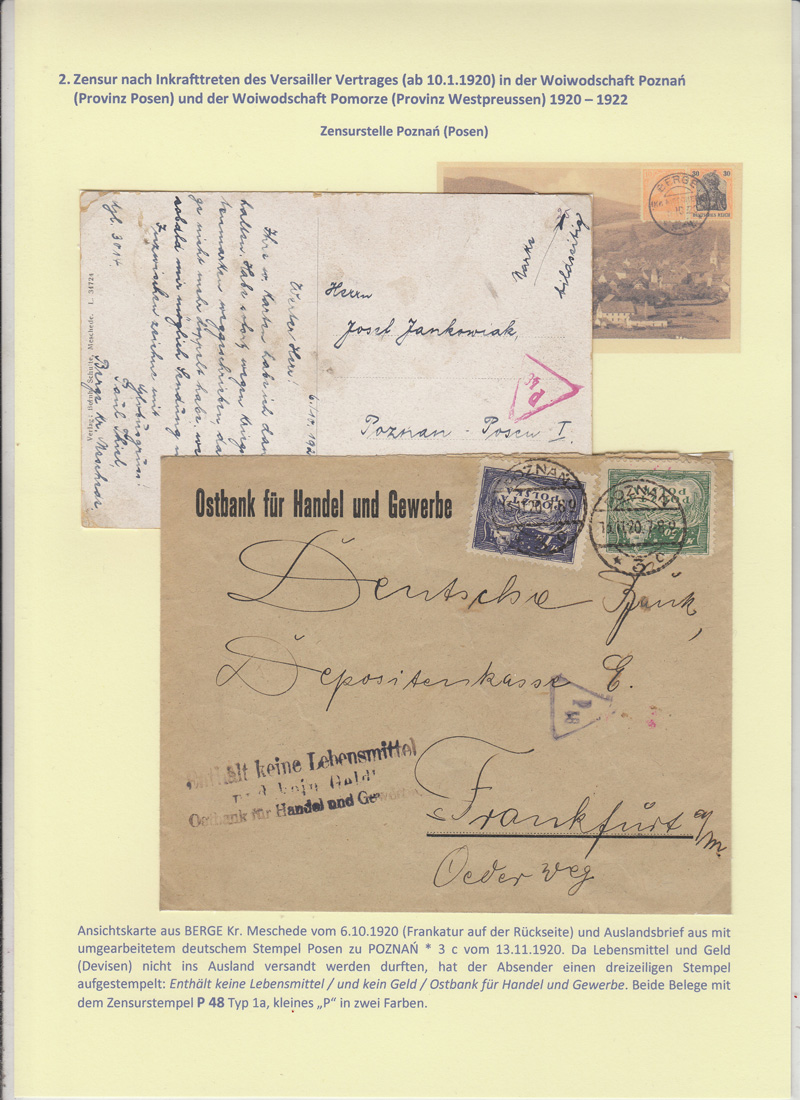 2. Zensur nach Inkrafttreten des Versailler Vertrages (ab 10.1.1920) in der Woiwodschaft Poznań
(Provinz Posen) und der Woiwodschaft Pomorze (Provinz Westpreussen) 1920 – 1922
Zensurstelle Poznań (Posen)
BERGE
30 30
DEUTSCHES REICH
Marke
bildseitig
Herrn
Josef Jankowiak,
Poznan - Posen I.
P
Werter Herr!
Ihre w. Karten habe ich
halten. Habe sofort wegen Kriegs
ge nicht mehr doppelt habe,
sobald mir möglich Sendung
Inzwischen zeichne mit
Paul Thiel,
Berge Kr. Meschede,
Meschede. I. 34724
Ostbank für Handel und Gewerbe
POCZTA
POLSKA
POZNAŃ
POZNAŃ
13.11.20.7-8
* 3 c
Deutsche Bank,
Depositenkasse E.
P 48
Enthält keine Lebensmittel
und kein Geld!
Ostbank für Handel und Gewerbe
Frankfurt a/M.
Oederweg
Ansichtskarte aus BERGE Kr. Meschede vom 6.10.1920 (Frankatur auf der Rückseite) und Auslandsbrief aus mit
umgearbeitetem deutschem Stempel Posen zu POZNAŃ * 3 c vom 13.11.1920. Da Lebensmittel und Geld
(Devisen) nicht ins Ausland versandt werden durften, hat der Absender einen dreizeiligen Stempel
aufgestempelt: Enthält keine Lebensmittel / und kein Geld / Ostbank für Handel und Gewerbe. Beide Belege mit
dem Zensurstempel P 48 Typ 1a, kleines „P“ in zwei Farben.